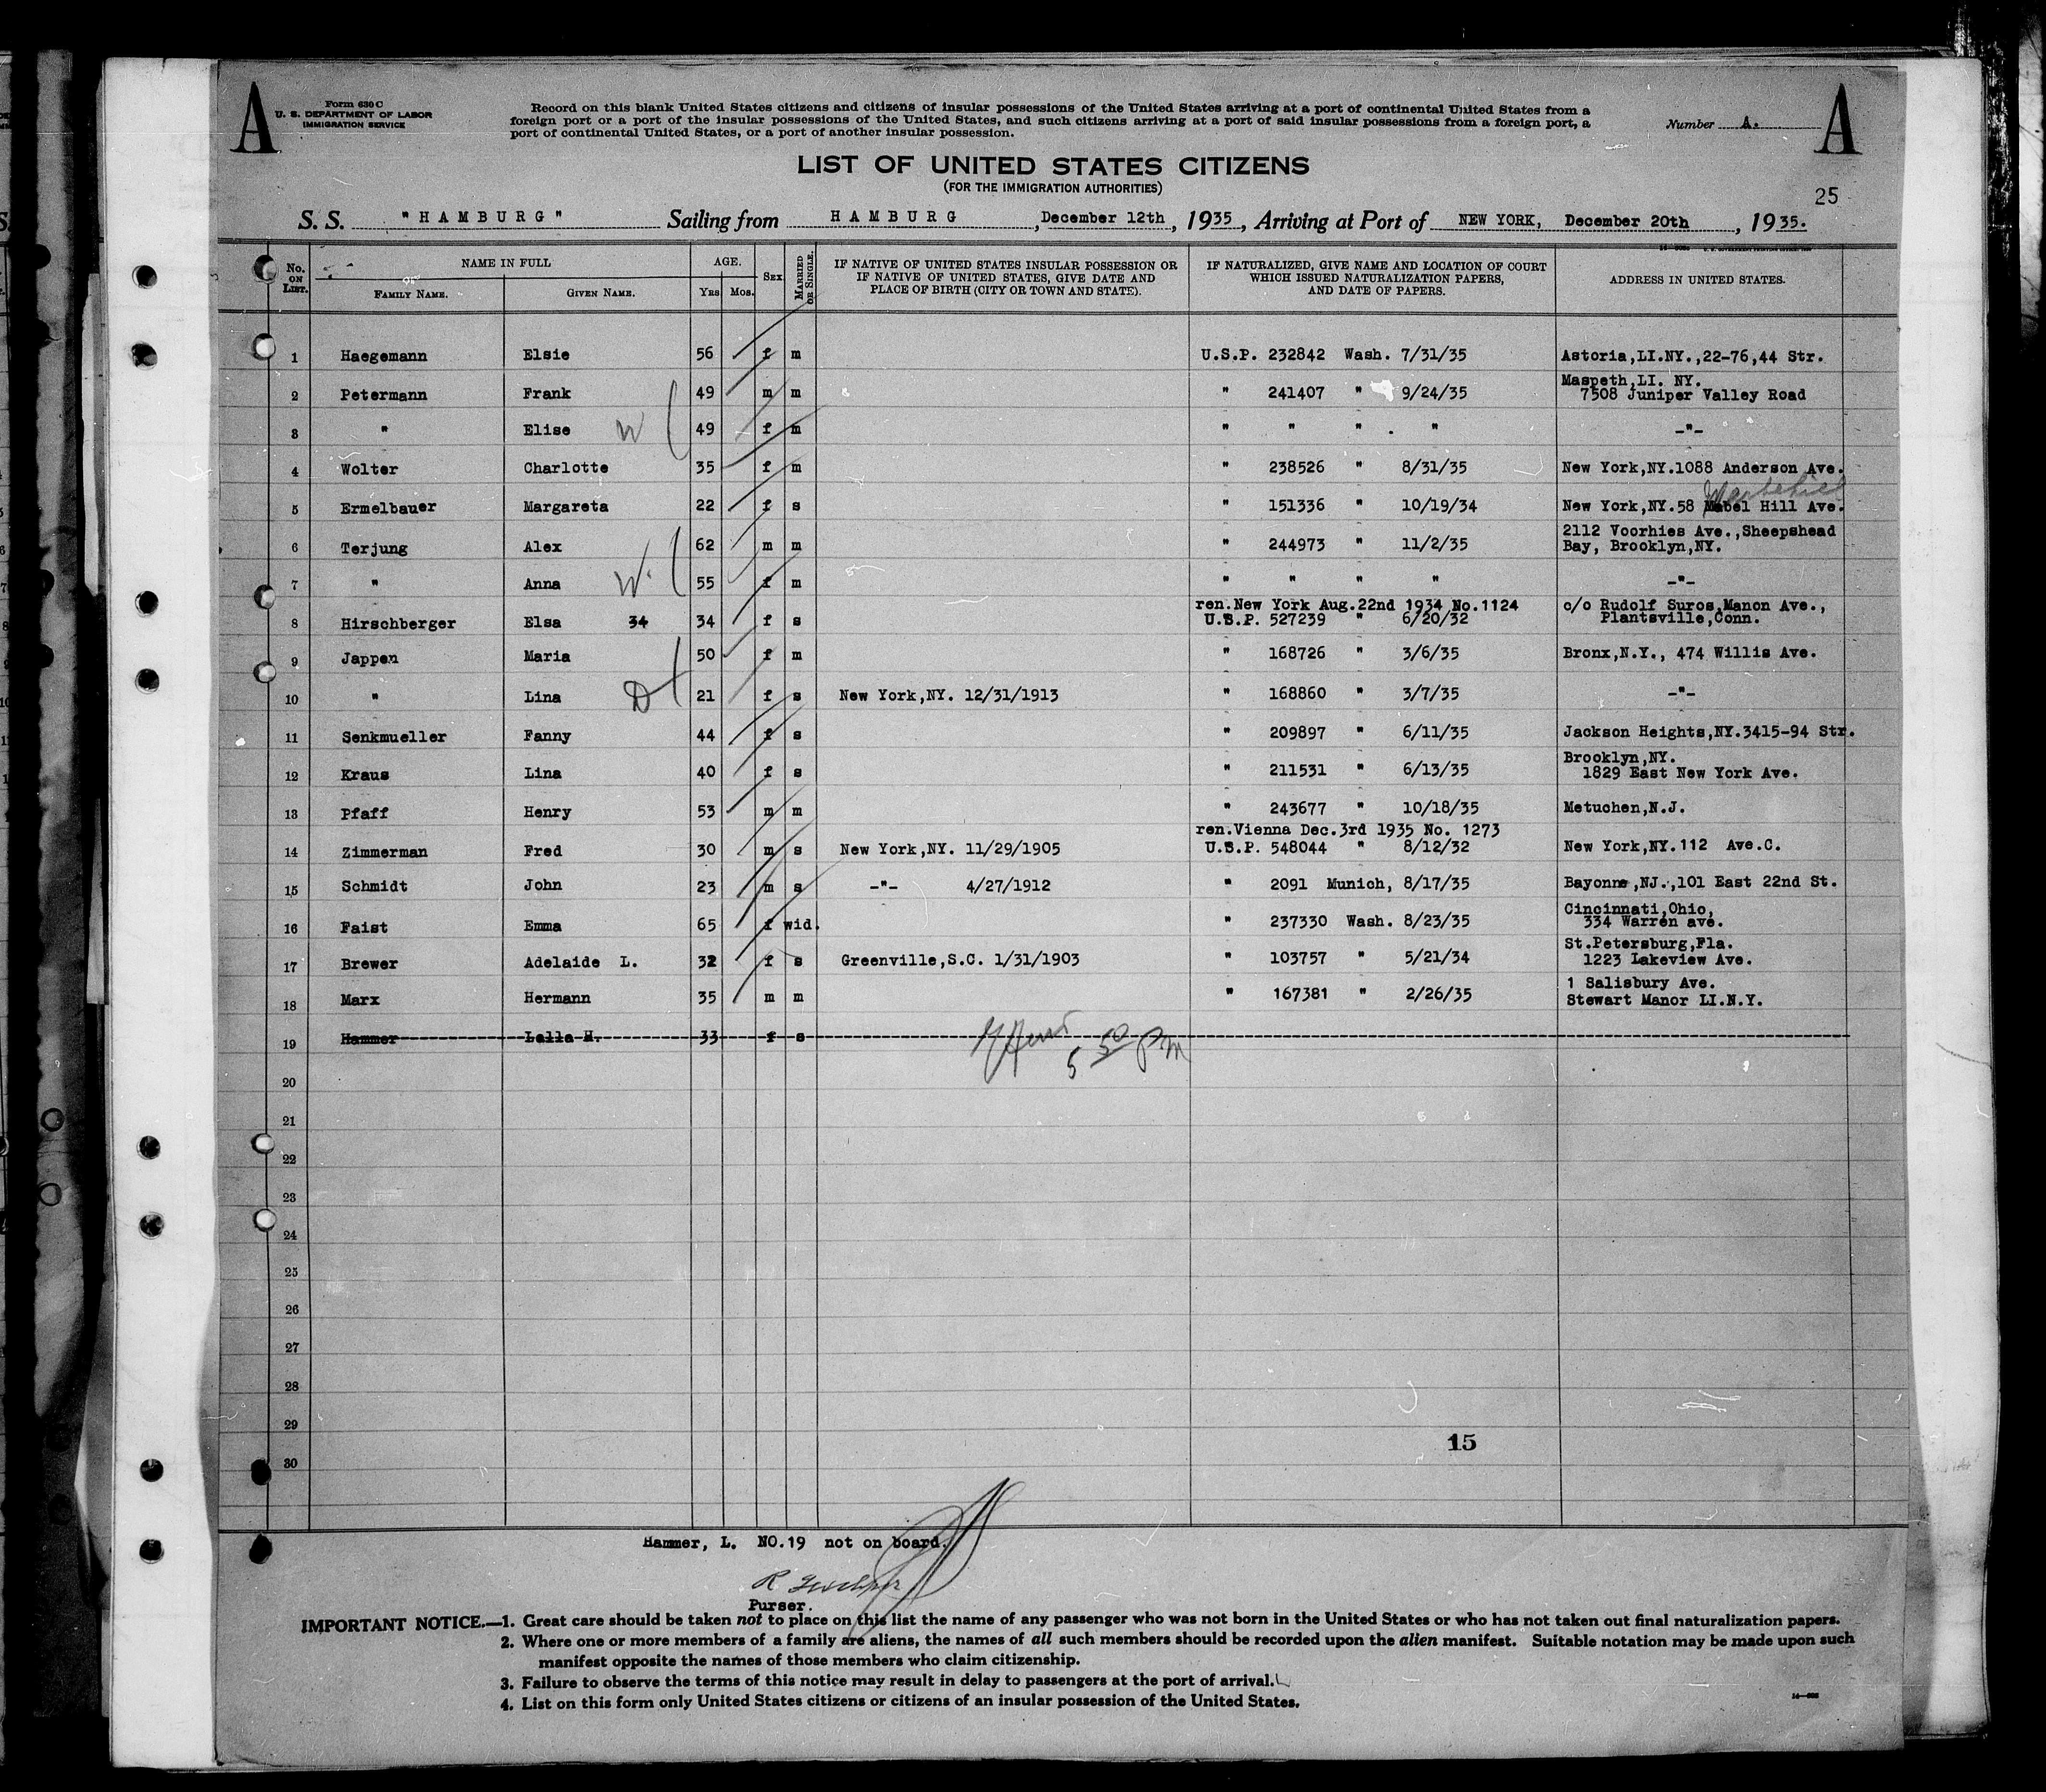 A
Form 630 C
U. S. DEPARTMENT OF LABOR
IMMIGRATION SERVICE
Record on this blank United States citizens and citizens of insular possessions of the United States arriving at a port of continental United States from a
foreign port or a port of the insular possessions of the United States, and such citizens arriving at a port of said insular possessions from a foreign port, a
port of continental United States, or a port of another insular possession.
Number A.
A
LIST OF UNITED STATES CITIZENS
(FOR THE IMMIGRATION AUTHORITIES)
25
S. S. "HAMBURG" Sailing from HAMBURG, December 12th, 1935, Arriving at Port of NEW YORK, December 20th, 1935.
No. ON LIST. NAME IN FULL FAMILY NAME. GIVEN NAME. AGE. YRS MOS. SEX MARRIED OR SINGLE. IF NATIVE OF UNITED STATES INSULAR POSSESSION OR IF NATIVE OF UNITED STATES, GIVE DATE AND PLACE OF BIRTH (CITY OR TOWN AND STATE). IF NATURALIZED, GIVE NAME AND LOCATION OF COURT WHICH ISSUED NATURALIZATION PAPERS, AND DATE OF PAPERS. ADDRESS IN UNITED STATES.
1 Haegemann Elsie 56 f m U.S.P. 232842 Wash. 7/31/35 Astoria,LI.NY.,22-76,44 Str.
2 Petermann Frank 49 m m " 241407 " 9/24/35 Maspeth,LI. NY.
7508 Juniper Valley Road
3 " Elise W 49 f m " " " " -"-
4 Wolter Charlotte 35 f m " 238526 " 8/31/35 New York,NY.1088 Anderson Ave.
5 Ermelbauer Margareta 22 f s " 151336 " 10/19/34 New York,NY.58 Mabel Hill Ave.
6 Terjung Alex 62 m m " 244973 " 11/2/35 2112 Voorhies Ave.,Sheepshead
Bay, Brooklyn,NY.
7 " Anna W. 55 f m " " " " -"-
ren.New York Aug.22nd 1934 No.1124
8 Hirschberger Elsa 34 34 f s U.S.P. 527239 " 6/20/32 c/o Rudolf Suros,Manon Ave.,
Plantsville,Conn.
9 Jappen Maria 50 f m " 168726 " 3/6/35 Bronx,N.Y., 474 Willis Ave.
10 " Lina D 21 f s New York,NY. 12/31/1913 " 168860 " 3/7/35 -"-
11 Senkmueller Fanny 44 f s " 209897 " 6/11/35 Jackson Heights,NY.3415-94 Str.
12 Kraus Lina 40 f s " 211531 " 6/13/35 Brooklyn,NY.
1829 East New York Ave.
13 Pfaff Henry 53 m m " 243677 " 10/18/35 Metuchen,N.J.
ren.Vienna Dec.3rd 1935 No. 1273
14 Zimmerman Fred 30 m s New York,NY. 11/29/1905 U.S.P. 548044 " 8/12/32 New York,NY.112 Ave.C.
15 Schmidt John 23 m s -"- 4/27/1912 " 2091 Munich, 8/17/35 Bayonne,NJ.,101 East 22nd St.
16 Faist Emma 65 f wid. " 237330 Wash. 8/23/35 Cincinnati,Ohio,
334 Warren ave.
17 Brewer Adelaide L. 32 f s Greenville,S.C. 1/31/1903 " 103757 " 5/21/34 St.Petersburg,Fla.
1223 Lakeview Ave.
18 Marx Hermann 35 m m " 167381 " 2/26/35 1 Salisbury Ave.
Stewart Manor LI.N.Y.
19 Hammer Lalla H. 33 f s
5 50 PM
20
21
22
23
24
25
26
27
28
29
15
30
Hammer, L. NO.19 not on board.
Purser.
IMPORTANT NOTICE.—1. Great care should be taken not to place on this list the name of any passenger who was not born in the United States or who has not taken out final naturalization papers.
2. Where one or more members of a family are aliens, the names of all such members should be recorded upon the alien manifest. Suitable notation may be made upon such
manifest opposite the names of those members who claim citizenship.
3. Failure to observe the terms of this notice may result in delay to passengers at the port of arrival.
4. List on this form only United States citizens or citizens of an insular possession of the United States.